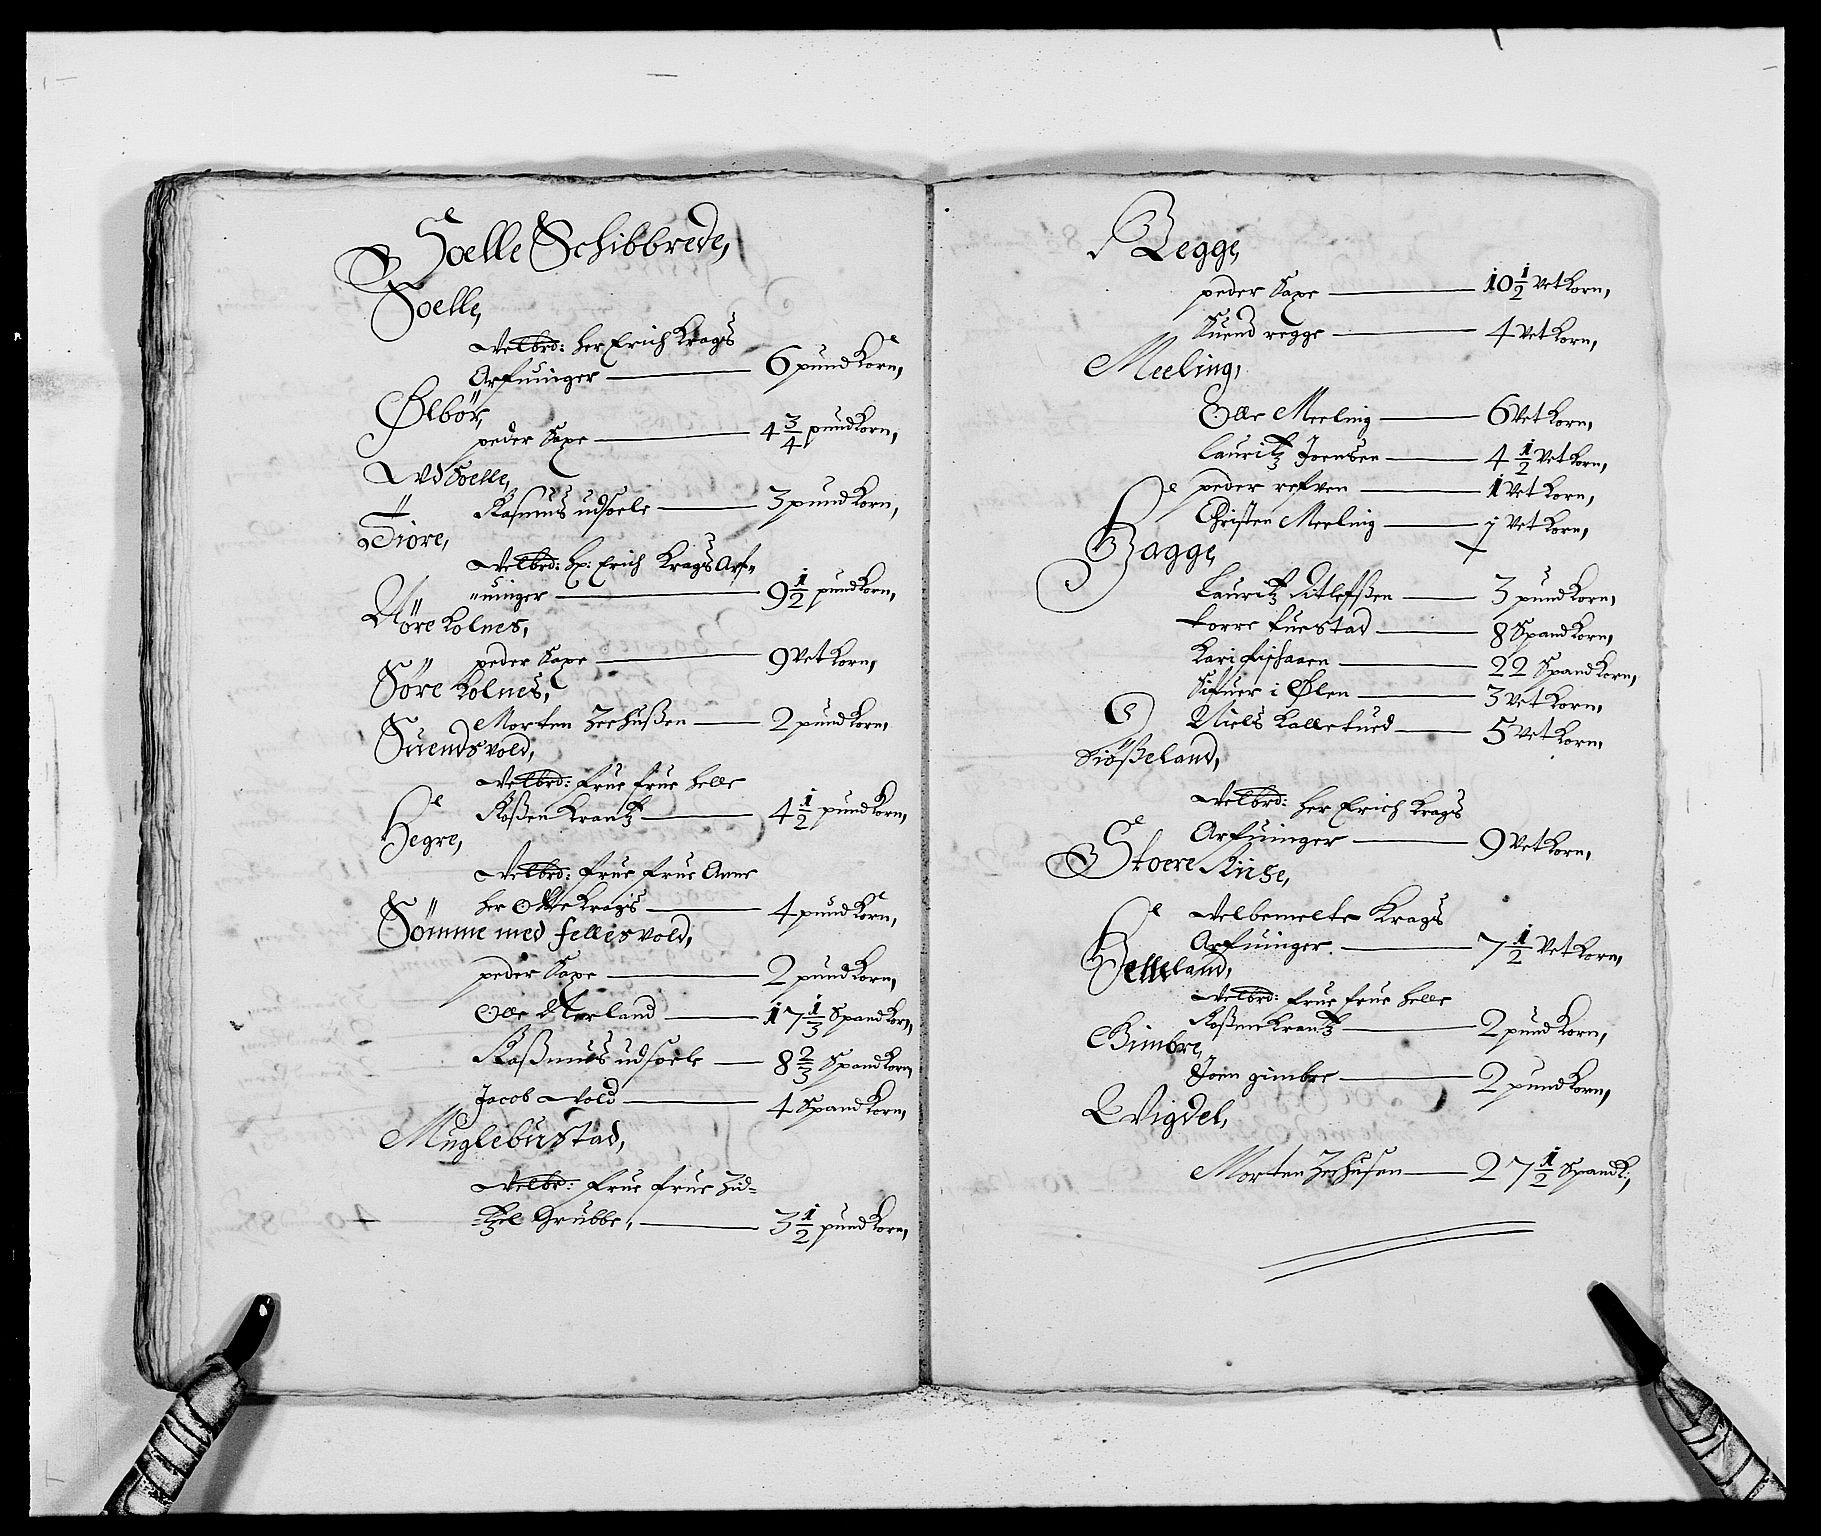 Soelle Schibbrede,
Soelle,
Velbrd: her Erich Krags
Arfuinger — 6 pund Korn,
Ølbör,
peder Saxe — 4 3/4 pund Korn,
Vdsoelle,
Rasmus udsoele — 3 pund Korn,
Tiøre,
Velbrd: hr: Erich Krags Arf=
=uinger — 9 1/2 pund Korn,
Nöre Kolnes,
peder Saxe — 9 Vet Korn,
Söre Kolnes,
Morten Zeehußen — 2 pund Korn,
Suendsvold,
Velbrd: frue frue helle
Roßen Krantz — 4 1/2 pund Korn,
Hegre,
Velbrd: frue frue Anne
her Otte Krags — 4 pund Korn,
Sömme med fellesvold,
peder Saxe — 2 pund Korn,
Olle Aarland — 17 1/3 Spand Korn,
Raßmus udsoele — 8 2/3 Spand Korn
Jacob Vold — 4 Spand Korn,
Muglebustad,
Velbr: frue frue Zid=
=tzel Grubbe, — 3 1/2 pund Korn,
Regge,
peder Saxe — 10 1/2 Vet Korn,
Suend regge — 4 Vet Korn,
Meeling,
Olle Meeling — 6 Vet Korn,
Lauritz Joensen — 4 1/2 Vet Korn,
peder refven — 1 Vet Korn,
Christen Meeling — 1 Vet Korn,
Hagge,
Lauritz Ditlefßen — 3 pund Korn,
torre tuestad — 8 Spand Korn,
Kari — 22 Spand Korn,
Sifuer i Ølen — 3 Vet Korn,
Niels Kalletued — 5 Vet Korn,
Siößeland,
Velbrd: her Erich Krags
Arfuinger — 9 Vet Korn,
Stoere Riise,
Velbemelte Krags
Arfuinger — 7 1/2 Vet Korn,
Helleland,
Velbrd: frue frue helle
Roßenkrantz — 2 pund Korn,
Gimbre,
Joen gimbre — 2 pund Korn,
Vigdel,
Morten Zeehusen — 27 1/2 Spand K:,